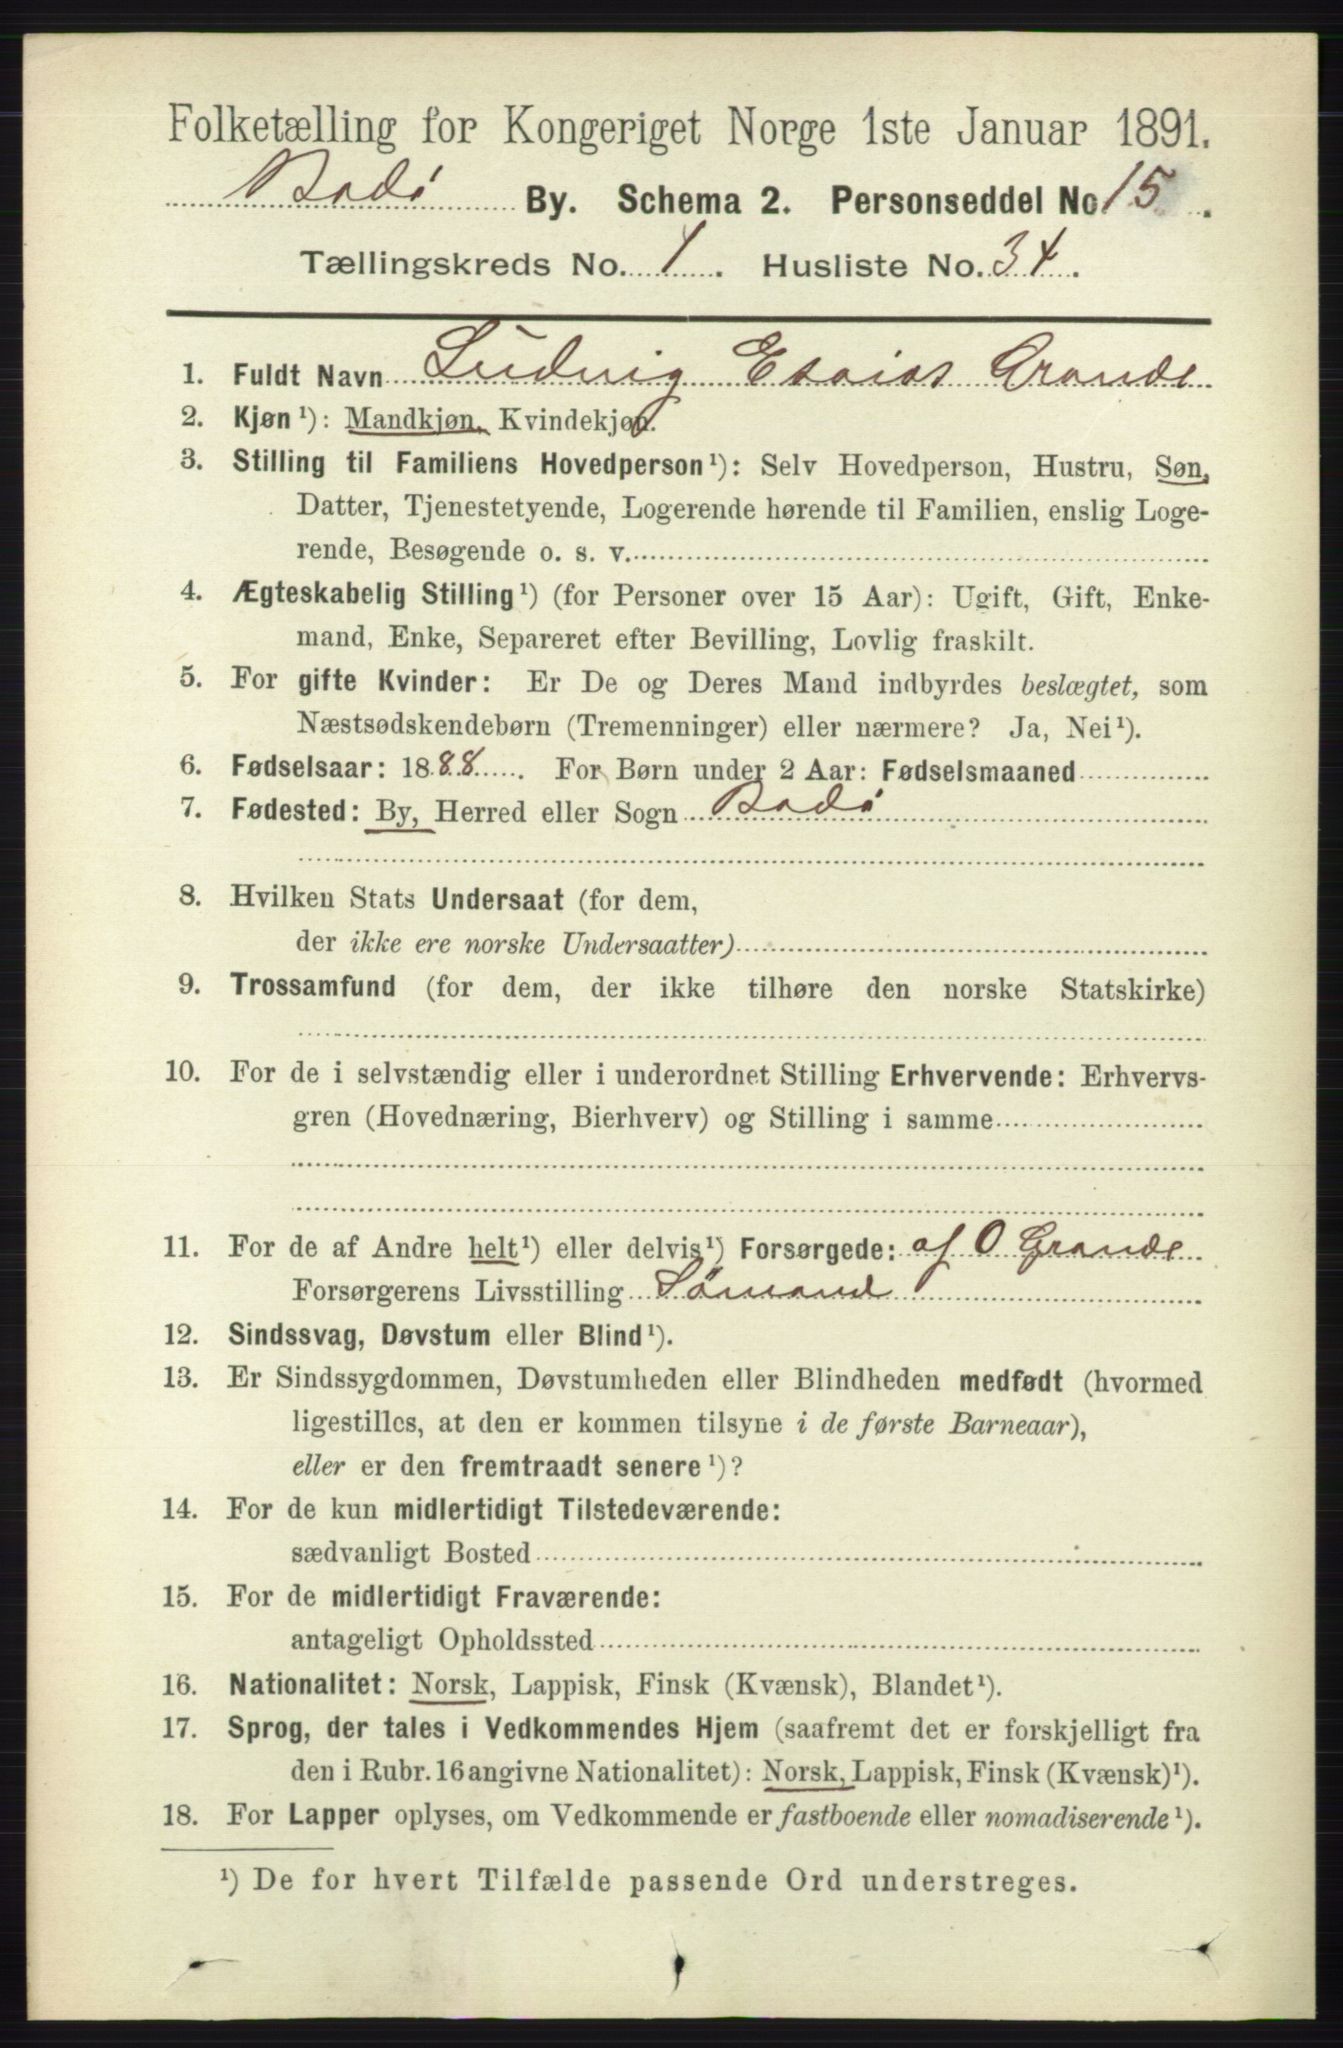 Folketælling for Kongeriget Norge 1ste Januar 1891.
Bodø By. Schema 2. Personseddel No 15.
Tællingskreds No. 1. Husliste No. 34.
1. Fuldt Navn Ludvig Esaias Grande
2. Kjøn¹): Mandkjøn, Kvindekjøn.
3. Stilling til Familiens Hovedperson¹): Selv Hovedperson, Hustru, Søn,
Datter, Tjenestetyende, Logerende hørende til Familien, enslig Loge-
rende, Besøgende o. s. v.
4. Ægteskabelig Stilling¹) (for Personer over 15 Aar): Ugift, Gift, Enke-
mand, Enke, Separeret efter Bevilling, Lovlig fraskilt.
5. For gifte Kvinder: Er De og Deres Mand indbyrdes beslægtet, som
Næstsødskendebørn (Tremenninger) eller nærmere? Ja, Nei¹).
6. Fødselsaar: 1888. For Børn under 2 Aar: Fødselsmaaned
7. Fødested: By, Herred eller Sogn Bodø
8. Hvilken Stats Undersaat (for dem,
der ikke ere norske Undersaatter)
9. Trossamfund (for dem, der ikke tilhøre den norske Statskirke)
10. For de i selvstændig eller i underordnet Stilling Erhvervende: Erhvervs-
gren (Hovednæring, Bierhverv) og Stilling i samme
11. For de af Andre helt¹) eller delvis¹) Forsørgede: af O Grande
Forsørgerens Livsstilling Sømand
12. Sindssvag, Døvstum eller Blind¹).
13. Er Sindssygdommen, Døvstumheden eller Blindheden medfødt (hvormed
ligestilles, at den er kommen tilsyne i de første Barneaar),
eller er den fremtraadt senere¹)?
14. For de kun midlertidigt Tilstedeværende:
sædvanligt Bosted
15. For de midlertidigt Fraværende:
antageligt Opholdssted
16. Nationalitet: Norsk, Lappisk, Finsk (Kvænsk), Blandet¹).
17. Sprog, der tales i Vedkommendes Hjem (saafremt det er forskjelligt fra
den i Rubr. 16 angivne Nationalitet): Norsk, Lappisk, Finsk (Kvænsk)¹).
18. For Lapper oplyses, om Vedkommende er fastboende eller nomadiserende¹).
¹) De for hvert Tilfælde passende Ord understreges.